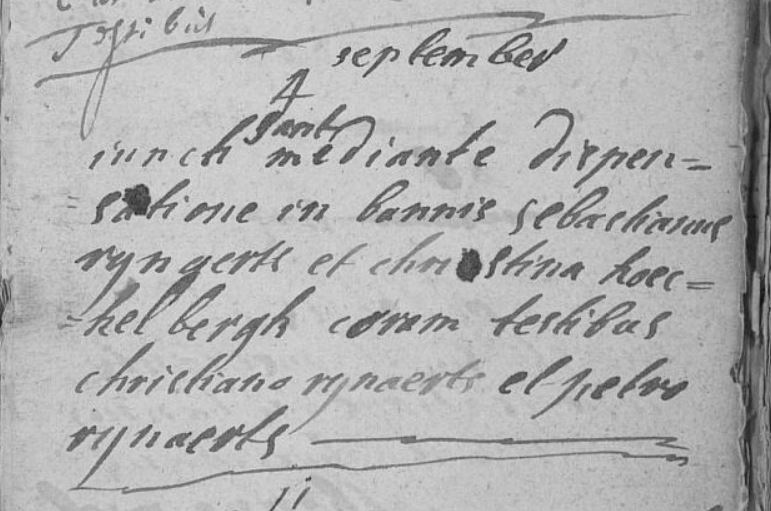 Testibus
september
4
iuncti sunt mediante dispen=
=satione in bannis sebastianus
ryngerts et christina hoec=
=kelbergh coram testibus
christiano rynaerts et petro
rynaerts
11